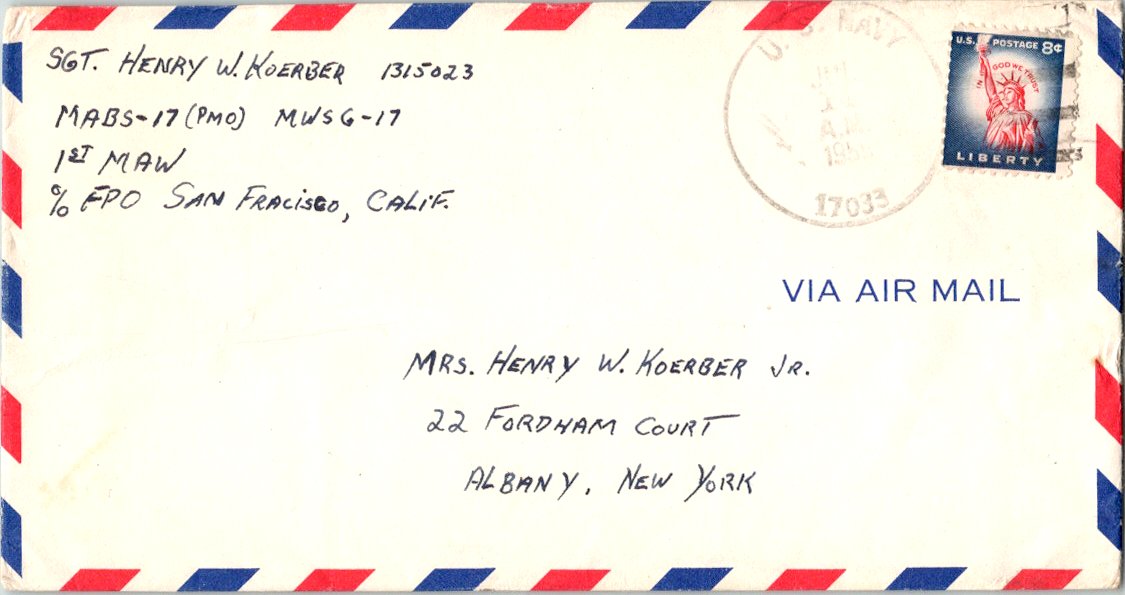 SGT. HENRY W. KOERBER 1315023
MABS-17 (PMO) MWSG-17
1ST MAW
c/o FPO SAN FRACISCO, CALIF.
U. S. NAVY
A.M.
17033
U.S. POSTAGE 8¢
IN GOD WE TRUST
LIBERTY
VIA AIR MAIL
MRS. HENRY W. KOERBER JR.
22 FORDHAM COURT
ALBANY, NEW YORK